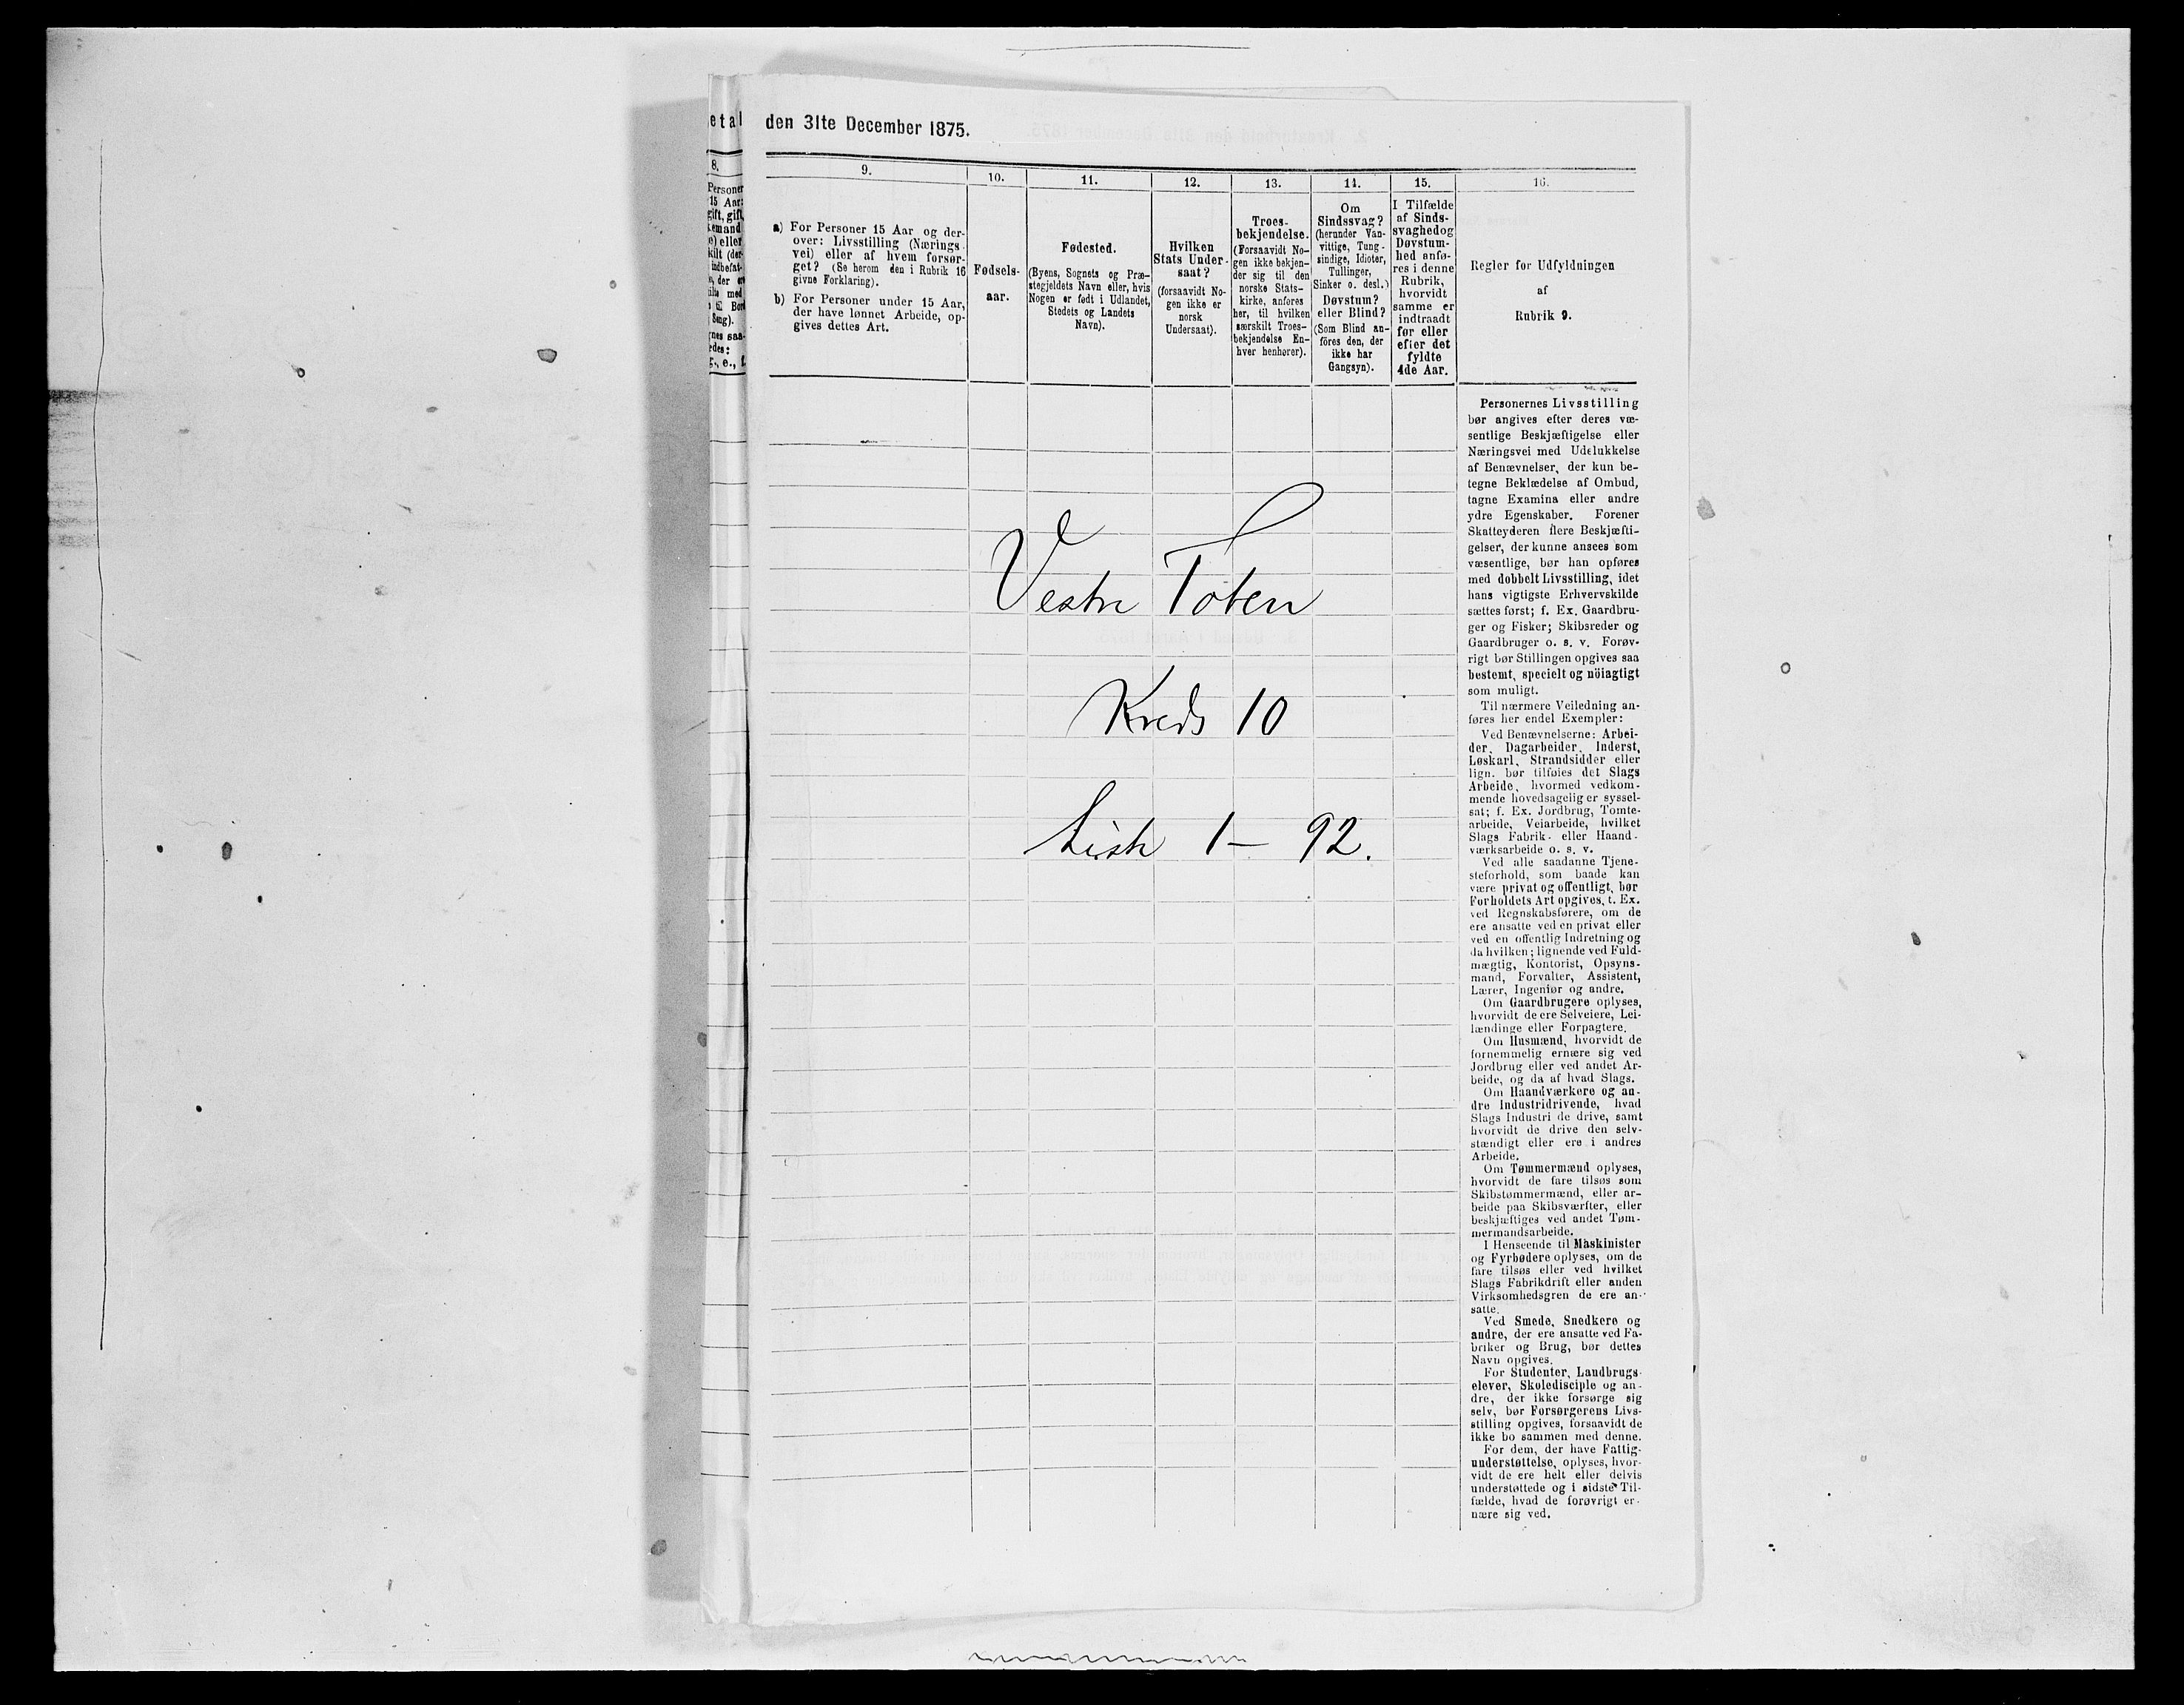 etal
8.
Personer
15 Aar:
gift, gift,
kemand
e) eller
den 31te December 1875.
9.
a) For Personer 15 Aar og der-
over: Livsstilling (Nærings-
vei) eller af hvem forsør-
get? (Se herom den i Rubrik 16
givne Forklaring).
b) For Personer under 15 Aar,
der have lønnet Arbeide, op-
gives dettes Art.
10.
Fødsels-
aar.
11.
Fødested.
(Byens, Sognets og Præ-
stegjeldets Navn eller, hvis
Nogen er født i Udlandet,
Stedets og Landets
Navn).
12.
Hvilken
Stats Under-
saat?
(forsaavidt No-
gen ikke er
norsk
Undersaat).
13.
Troes-
bekjendelse.
(Forsaavidt No-
gen ikke bekjen-
der sig til den
norske Stats-
kirke, anføres
her, til hvilken
særskilt Troes-
bekjendelse En-
hver henhører).
14.
Om
Sindssvag?
(herunder Van-
vittige, Tung-
sindige, Idioter,
Tullinger,
Sinker o. desl.)
Døvstum?
eller Blind?
(Som Blind an-
föres den, der
ikke har
Gangsyn).
15.
I Tilfælde
af Sinds-
svaghed og
Døvstum-
hed anfø-
res i denne
Rubrik,
hvorvidt
samme er
indtraadt
før eller
efter det
fyldte
4de Aar.
16.
Regler for Udfyldningen
af
Rubrik 9.
Vestre Toten
Kreds 10
Liste 1 – 92.
Personernes Livsstilling
bør angives efter deres væ-
sentlige Beskjæftigelse eller
Næringsvei med Udelukkelse
af Benævnelser, der kun be-
tegne Beklædelse af Ombud,
tagne Examina eller andre
ydre Egenskaber. Forener
Skatteyderen flere Beskjæfti-
gelser, der kunne ansees som
væsentlige, bør han opføres
med dobbelt Livsstilling, idet
hans vigtigste Erhvervskilde
sættes først; f. Ex. Gaardbru-
ger og Fisker; Skibsreder og
Gaardbruger o. s. v. Forøv-
rigt bør Stillingen opgives saa
bestemt, specielt og nöiagtigt
som muligt.
Til nærmere Veiledning an-
føres her endel Exempler:
Ved Benævnelserne: Arbei-
der, Dagarbeider, Inderst,
Løskarl, Strandsidder eller
lign. bør tilføies det Slags
Arbeide, hvormed vedkom-
mende hovedsagelig er syssel-
sat; f. Ex. Jordbrug, Tomte-
arbeide, Veiarbeide, hvilket
Slags Fabrik- eller Haand-
værksarbeide o. s. v.
Ved alle saadanne Tjene-
steforhold, som baade kan
være privat og offentligt, bør
Forholdets Art opgives, t. Ex.
ved Regnskabsførere, om de
ere ansatte ved en privat eller
ved en offentlig Indretning og
da hvilken; lignende ved Fuld-
mægtig, Kontorist, Opsyns-
mand, Forvalter, Assistent,
Lærer, Ingeniør og andre.
Om Gaardbrugere oplyses,
hvorvidt de ere Selveiere, Lei-
lændinge eller Forpagtere.
Om Husmænd, hvorvidt de
fornemmelig ernære sig ved
Jordbrug eller ved andet Ar-
beide, og da af hvad Slags.
Om Haandværkere og an-
dre Industridrivende, hvad
Slags Industri de drive, samt
hvorvidt de drive den selv-
stændigt eller ere i andres
Arbeide.
Om Tømmermænd oplyses,
hvorvidt de fare tilsøs som
Skibstømmermænd, eller ar-
beide paa Skibsværfter, eller
beskjæftiges ved andet Tøm-
mermandsarbeide.
I Henseende til Maskinister
og Fyrbødere oplyses, om de
fare tilsøs eller ved hvilket
Slags Fabrikdrift eller anden
Virksomhedsgren de ere an-
satte.
Ved Smede, Snedkere og
andre, der ere ansatte ved Fa-
briker og Brug, bør dettes
Navn opgives.
For Studenter, Landbrugs-
elever, Skoledisciple og an-
dre, der ikke forsørge sig
selv, bør Forsørgerens Livs-
stilling opgives, forsaavidt de
ikke bo sammen med denne.
For dem, der have Fattig-
understøttelse, oplyses, hvor-
vidt de ere helt eller delvis
understøttede og i sidste Til-
fælde, hvad de forøvrigt er-
nære sig ved.